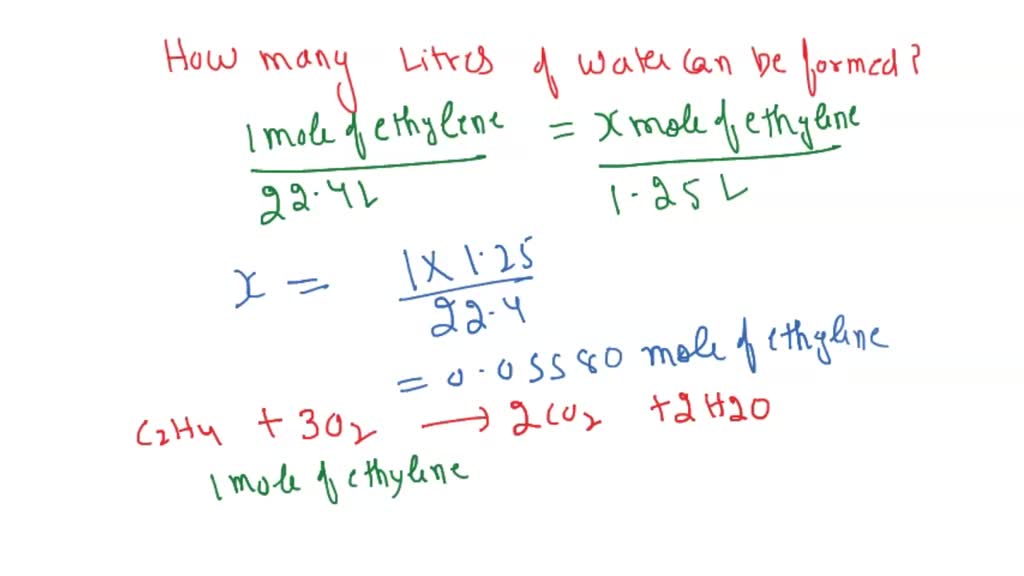 How many Litres of water can be formed?
1 mole of ethylene = x mole of ethyline
22.4L 1.25 L
x = 1 X 1.25
22.4
= 0.05580 mole of ethyline
C2H4 + 3O2 → 2CO2 + 2H2O
1 mole of ethylene